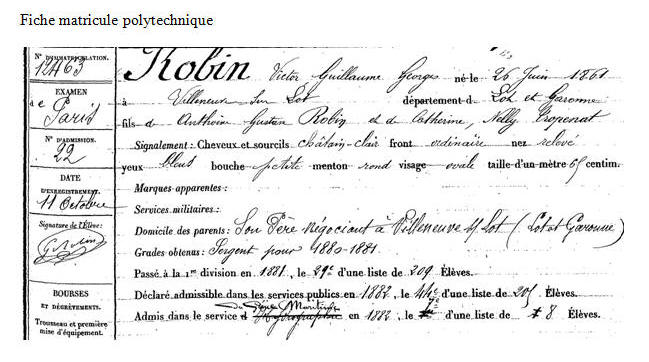 Fiche matricule polytechnique
N° D'IMMATRICULATION.
12463
EXAMEN
de Paris
N° D'ADMISSION.
22
DATE
D'ENREGISTREMENT.
11 Octobre
Signature de l'Élève:
G Robin
BOURSES
ET DÉGRÈVEMENTS.
Trousseau et première
mise d'équipement.
Robin Victor Guillaume Georges né le 26 Juin 1861
à Villeneuve sur Lot département d Lot et Garonne
fils d Anthoine Gustave Robin et de Catherine, Nelly Tropenat
Signalement: Cheveux et sourcils châtain-clair front ordinaire nez relevé
yeux bleus bouche petite menton rond visage ovale taille d'un mètre 65 centim.
Marques apparentes:
Services militaires:
Domicile des parents: Son Père Négociant à Villeneuve s/ Lot (Lot et Garonne)
Grades obtenus: Sergent pour 1880-1881.
Passé à la 1re division en 1881, le 29e d'une liste de 209 Élèves.
Déclaré admissible dans les services publics en 1882, le d'une liste de 205 Élèves.
du Génie Maritime
Admis dans le service d' Hydrographie en 1882, le d'une liste de 8 Élèves.